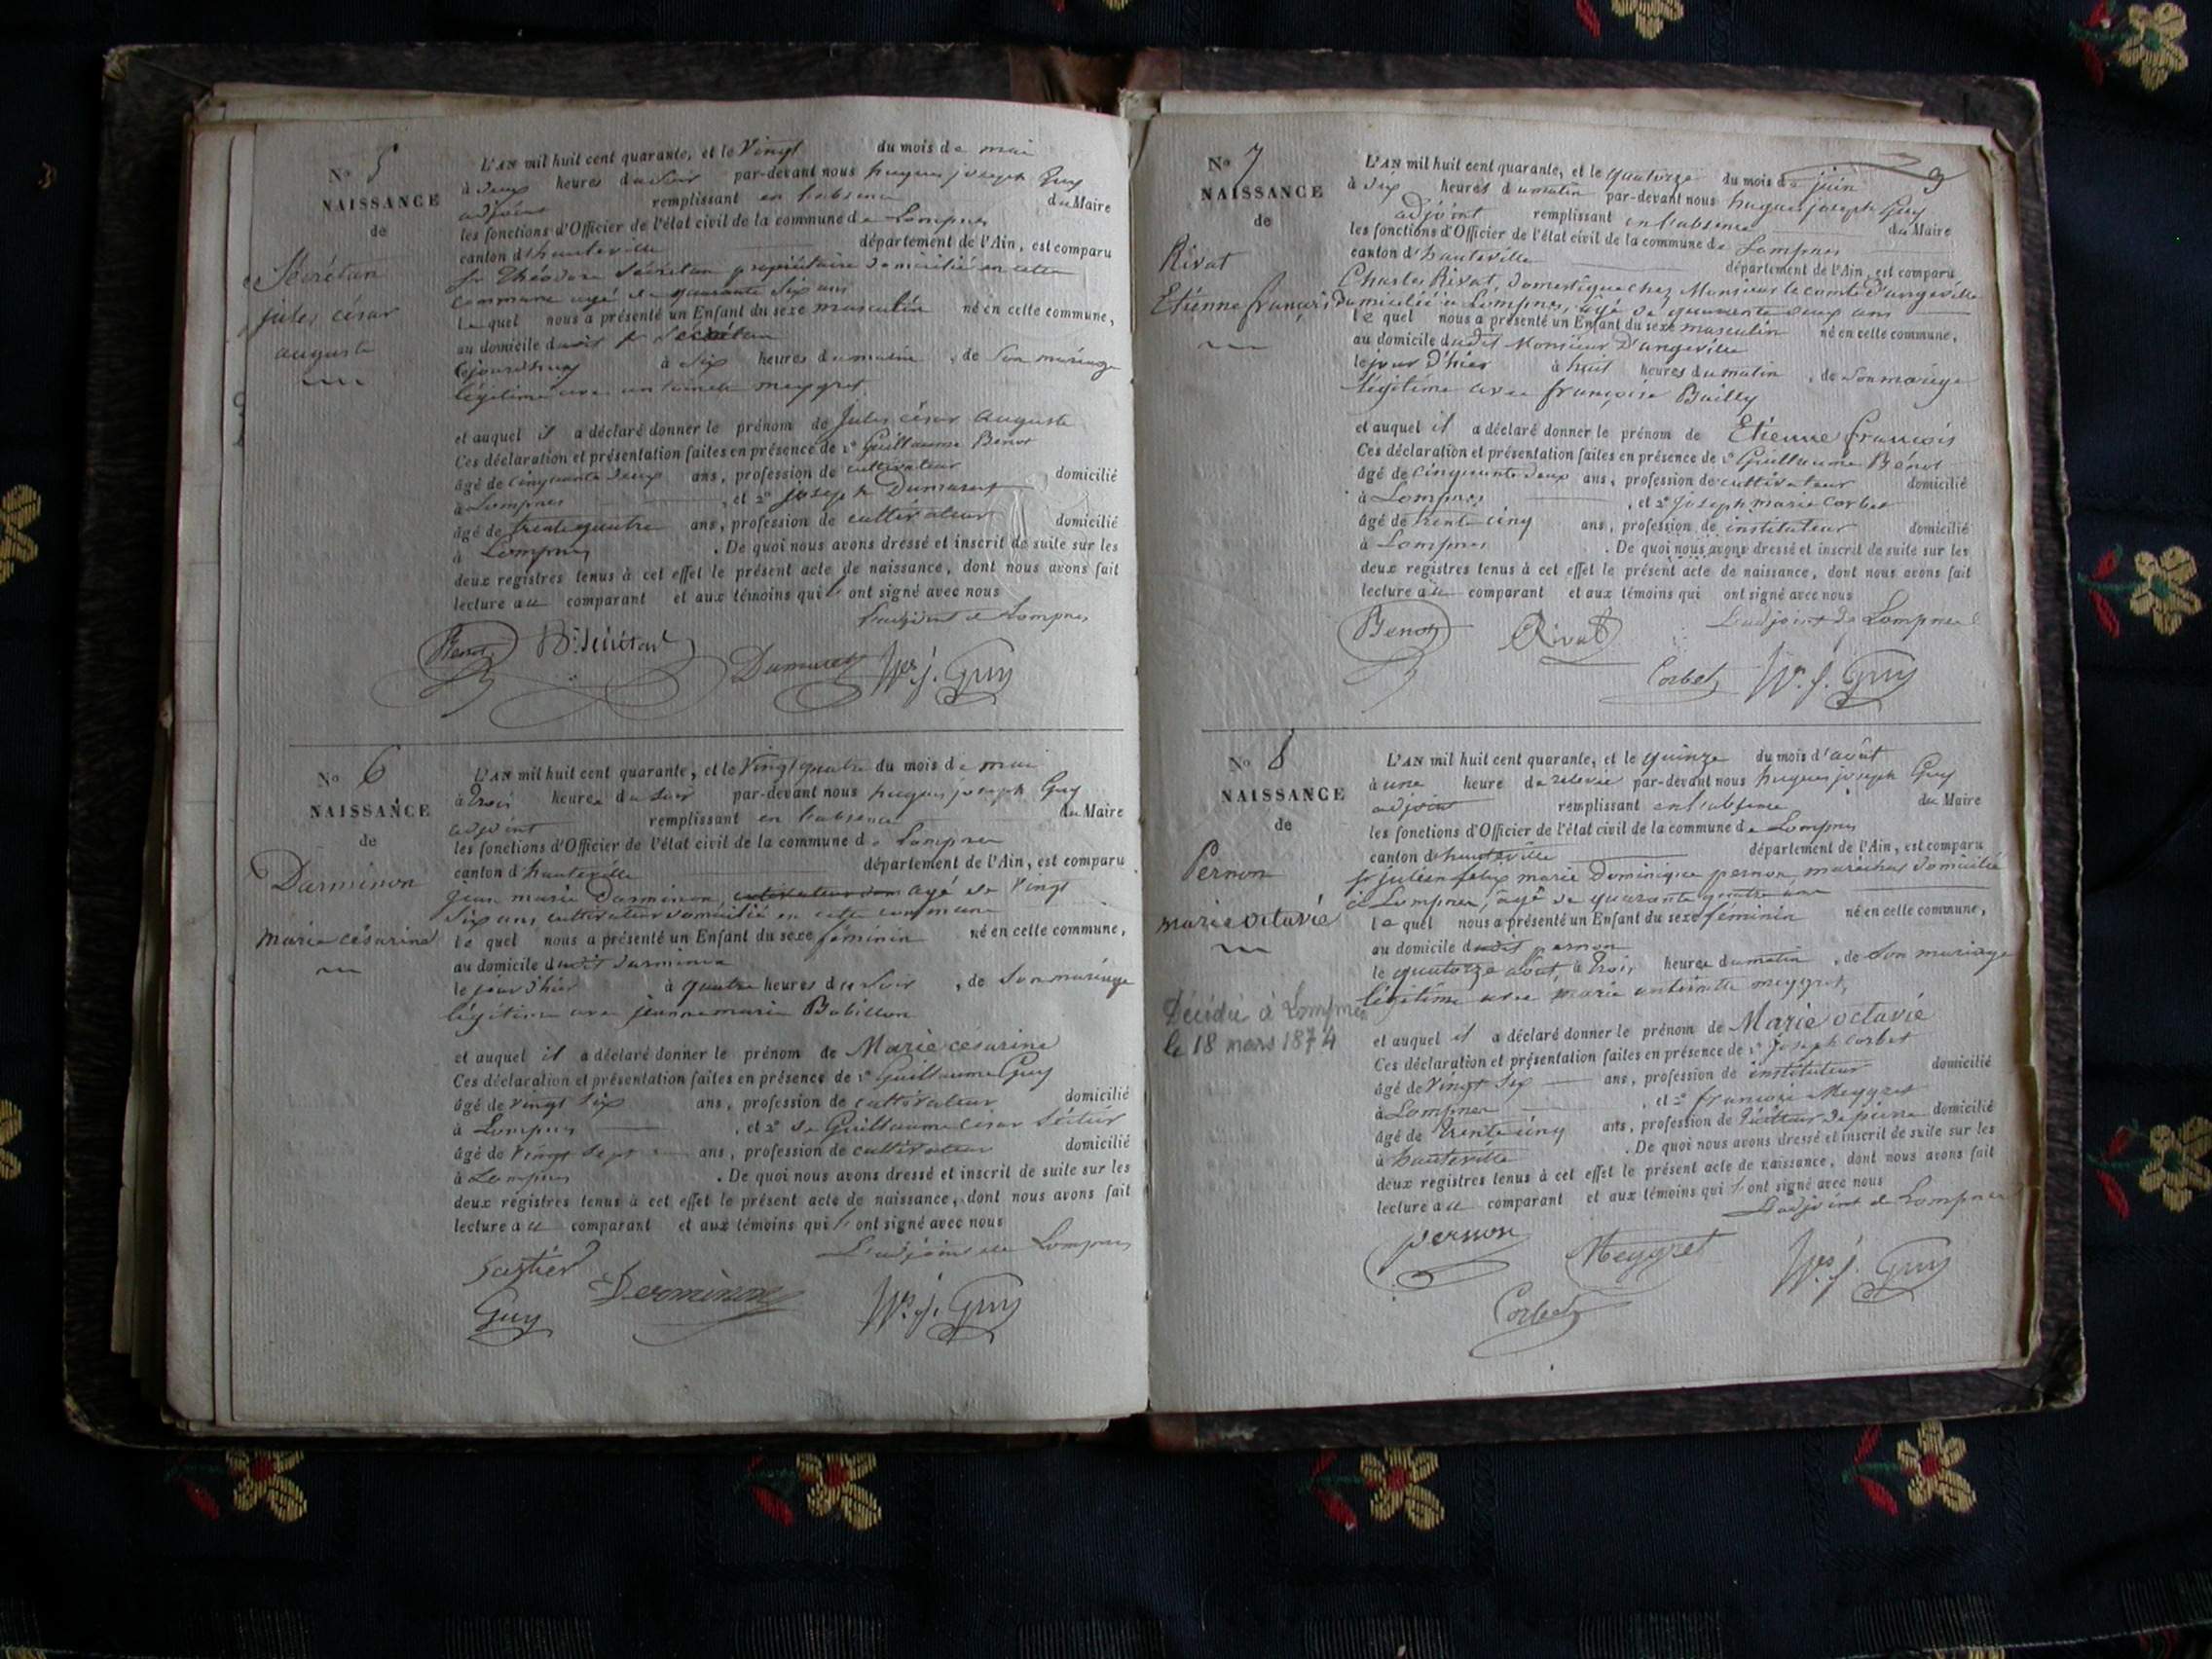 No 5
NAISSANCE
de
Sécrétan
jules césar
auguste
L'AN mil huit cent quarante, et le Vingt du mois de mai
à deux heures du soir par-devant nous hugues joseph Guy
adjoint remplissant en l'absence du Maire
les fonctions d'Officier de l'état civil de la commune de Lompnes
canton d'hauteville département de l'Ain, est comparu
sr Théodore Sécrétan propriétaire domicilié en cette
commune agé de quarante six ans
lequel nous a présenté un Enfant du sexe masculin né en cette commune,
au domicile dudit sr Sécrétan
cejourdhuy à six heures du matin, de son mariage
légitime avec meygret
et auquel il a déclaré donner le prénom de jules césar auguste
Ces déclaration et présentation faites en présence de 1° Guillaume Benot
âgé de cinquante deux ans, profession de cultivateur domicilié
à Lompnes, et 2° joseph Dumarest
âgé de trente quatre ans, profession de cultivateur domicilié
à Lompnes. De quoi nous avons dressé et inscrit de suite sur les
deux registres tenus à cet effet le présent acte de naissance, dont nous avons fait
lecture au comparant et aux témoins qui ont signé avec nous
L'adjoint de Lompnes
Benot Sécrétan
Dumarest hes j. Guy
No 6
NAISSANCE
de
Darminon
marie césarine
L'AN mil huit cent quarante, et le Vingt quatre du mois de mai
à trois heures du soir par-devant nous hugues joseph Guy
adjoint remplissant en l'absence du Maire
les fonctions d'Officier de l'état civil de la commune de Lompnes
canton d'hauteville département de l'Ain, est comparu
jean marie Darminon, agé de Vingt
six ans, cultivateur domicilié en cette commune
lequel nous a présenté un Enfant du sexe féminin né en cette commune,
au domicile dudit darminon
le jour d'hier à quatre heures du soir, de son mariage
légitime avec jeanne marie Bobillon
et auquel il a déclaré donner le prénom de Marie césarine
Ces déclaration et présentation faites en présence de 1° Guillaume Guy
âgé de vingt six ans, profession de cultivateur domicilié
à Lompnes, et 2° sr Guillaume césar
âgé de vingt sept ans, profession de cultivateur domicilié
à Lompnes. De quoi nous avons dressé et inscrit de suite sur les
deux registres tenus à cet effet le présent acte de naissance, dont nous avons fait
lecture au comparant et aux témoins qui ont signé avec nous
L'adjoint de Lompnes
Derminon
Guy hes j. Guy
9
No 7
NAISSANCE
de
Rivat
Etienne françois
L'AN mil huit cent quarante, et le quatorze du mois de juin
à six heures du matin par-devant nous hugues joseph Guy
adjoint remplissant en l'absence du Maire
les fonctions d'Officier de l'état civil de la commune de Lompnes
canton d'hauteville département de l'Ain, est comparu
Charles Rivat, domestique chez Monsieur le comte d'angeville
domicilié à Lompnes, âgé de quarante deux ans
lequel nous a présenté un Enfant du sexe masculin né en cette commune,
au domicile dudit Monsieur D'angeville
le jour d'hier à huit heures du matin, de son mariage
légitime avec françoise Bailly
et auquel il a déclaré donner le prénom de Etienne françois
Ces déclaration et présentation faites en présence de 1° Guillaume Bénot
âgé de cinquante deux ans, profession de cultivateur domicilié
à Lompnes, et 2° joseph marie Corbet
âgé de trente cinq ans, profession de instituteur domicilié
à Lompnes. De quoi nous avons dressé et inscrit de suite sur les
deux registres tenus à cet effet le présent acte de naissance, dont nous avons fait
lecture au comparant et aux témoins qui ont signé avec nous
L'adjoint de Lompnes
Benot Rivat
Corbet hes j. Guy
No 8
NAISSANCE
de
Pernon
marie octavie
Décédée à Lompnes
le 18 mars 1874
L'AN mil huit cent quarante, et le quinze du mois d'août
à une heure de relevée par-devant nous hugues joseph Guy
adjoint remplissant en l'absence du Maire
les fonctions d'Officier de l'état civil de la commune de Lompnes
canton d'hauteville département de l'Ain, est comparu
sr julien félix marie Dominique pernon, maréchal domicilié
à Lompnes, âgé de quarante quatre ans
lequel nous a présenté un Enfant du sexe féminin né en cette commune,
au domicile dudit pernon
le quatorze août à trois heures du matin, de son mariage
légitime avec marie antoinette meygret,
et auquel il a déclaré donner le prénom de Marie octavie
Ces déclaration et présentation faites en présence de 1° joseph Corbet
âgé de vingt six ans, profession de instituteur domicilié
à Lompnes, et 2° françois Meygret
âgé de trente cinq ans, profession de de pierre domicilié
à hauteville. De quoi nous avons dressé et inscrit de suite sur les
deux registres tenus à cet effet le présent acte de naissance, dont nous avons fait
lecture au comparant et aux témoins qui ont signé avec nous
L'adjoint de Lompnes
pernon Meygret hes j. Guy
Corbet